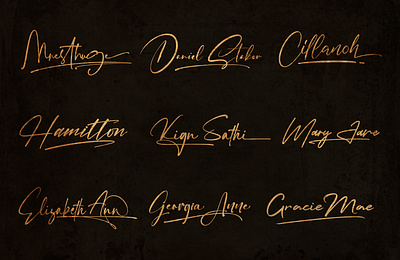 Daniel Stoker
Cillanoh
Hamilton
Kign Sathi
Mary Jane
Elizabeth Ann
Georgia Anne
Gracie Mae